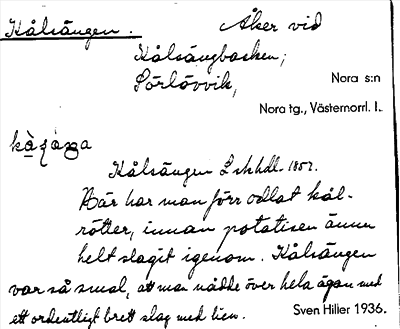 Kålsängen. Åker vid
Kålsängbacken,
Sörlövvik,
Nora s:n
Nora tg., Västernorrl. l.
Kålsängen L skhdl. 1857.
Här har man förr odlat kål-
rötter, innan potatisen ännu
helt slagit igenom. Kålsängen
var så smal, att man nådde över hela ägan med
ett ordentligt brett slag med lien. Sven Hiller 1936.